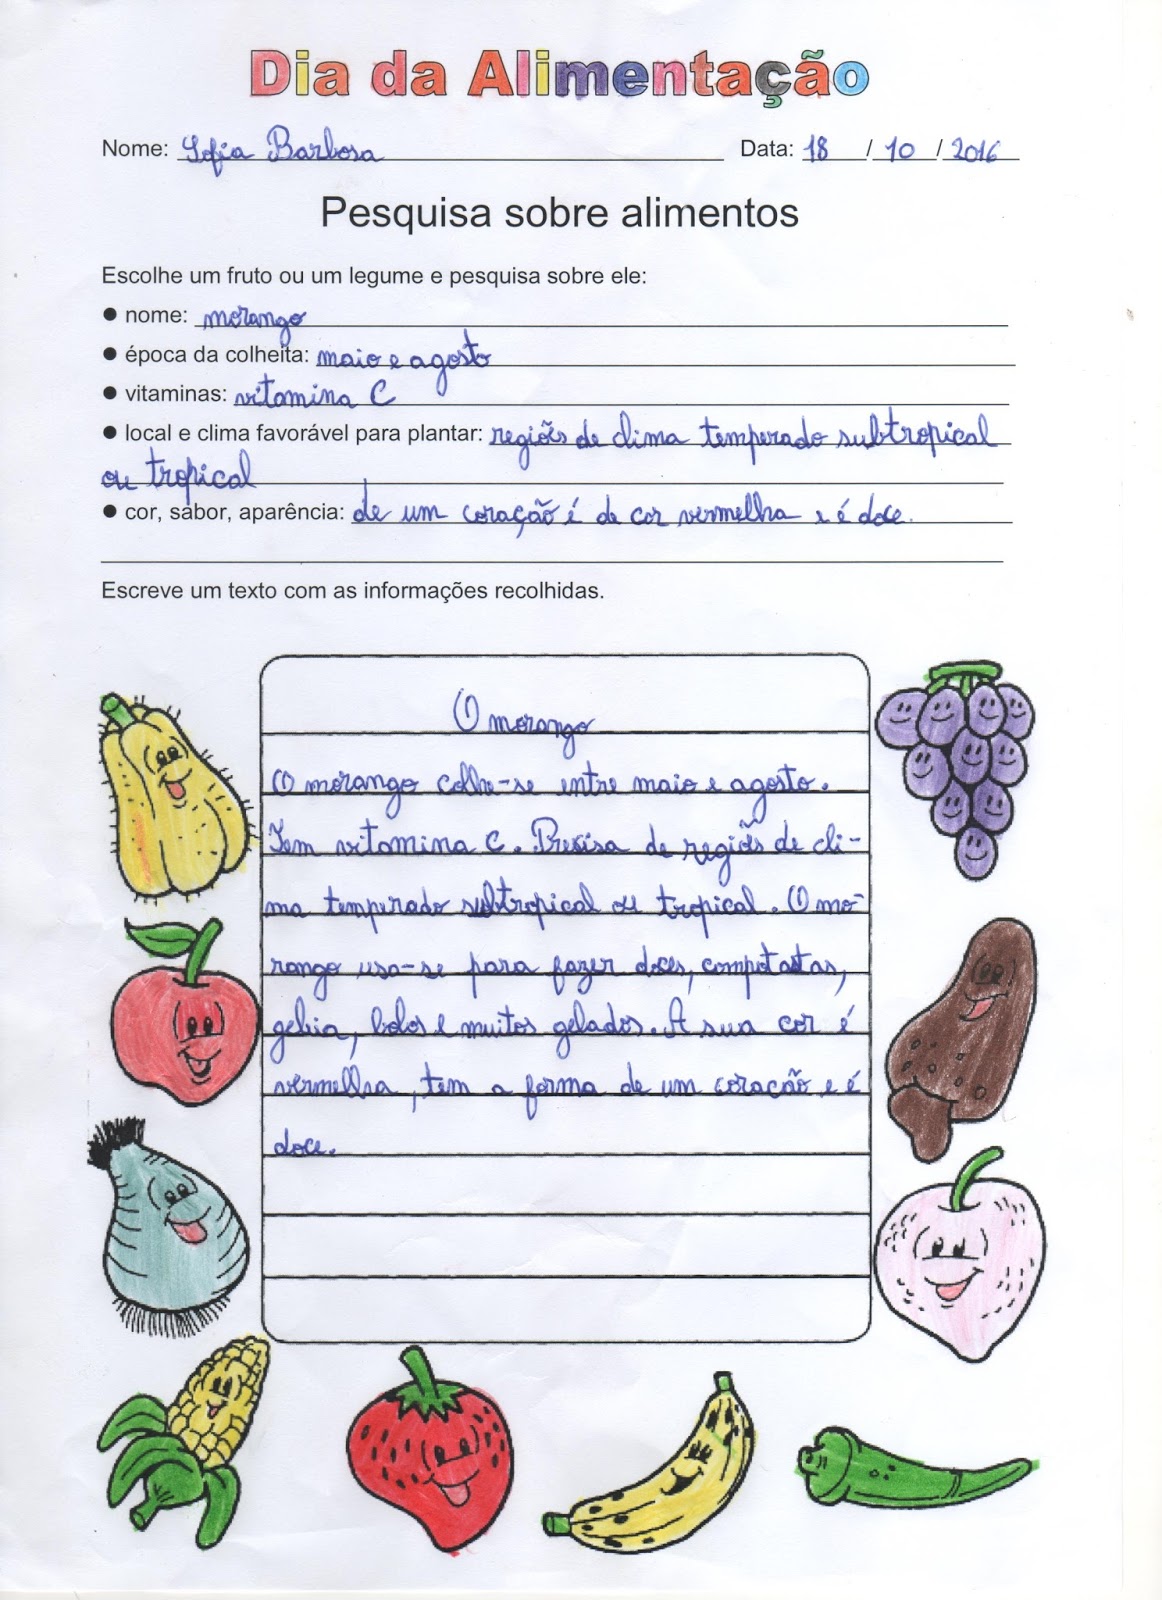 Dia da Alimentação
Nome: Sofia Barbosa Data: 18 / 10 / 2016
Pesquisa sobre alimentos
Escolhe um fruto ou um legume e pesquisa sobre ele:
● nome: morango
● época da colheita: maio e agosto
● vitaminas: vitamina C
● local e clima favorável para plantar: regiões de clima temperado subtropical
ou tropical
● cor, sabor, aparência: de um coração é de cor vermelha e é doce.
Escreve um texto com as informações recolhidas.
O morango
O morango colhe-se entre maio e agosto.
Tem vitamina C. Precisa de regiões de cli-
ma temperado subtropical ou tropical. O mo-
rango usa-se para fazer doces, compotastas,
geleia, bolos e muitos gelados. A sua cor é
vermelha, tem a forma de um coração e é
doce.